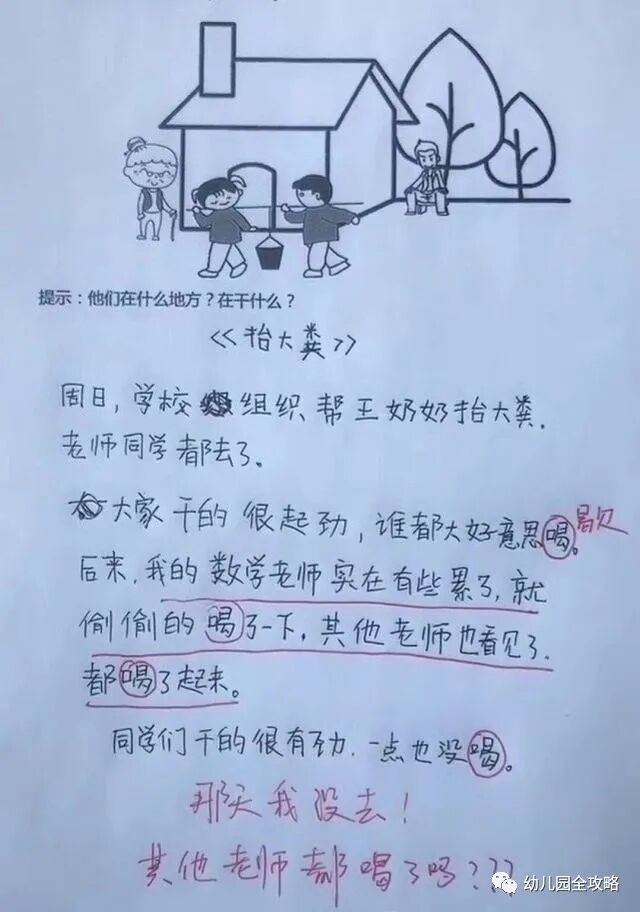 提示：他们在什么地方？在干什么？
《抬大粪》
周日，学校组织帮王奶奶抬大粪.
老师同学都去了。
大家干的很起劲，谁都大好意思喝。歇
后来，我的数学老师实在有些累了，就
偷偷的喝了一下，其他老师也看见了.
都喝了起来。
同学们干的很有劲.一点也没喝。
那天我没去！
其他老师都喝了吗？？？
幼儿园全攻略